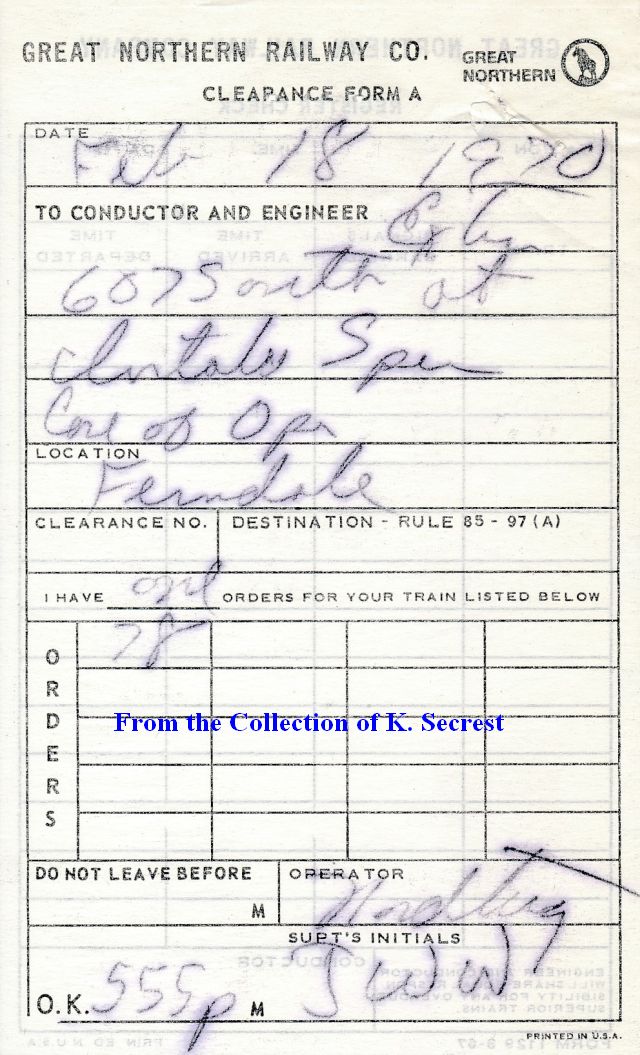 GREAT NORTHERN RAILWAY CO.
GREAT
NORTHERN
CLEARANCE FORM A
DATE
Feb 18 1970
TO CONDUCTOR AND ENGINEER
607 South at
Spur
Care of Opr
LOCATION
Ferndale
CLEARANCE NO. DESTINATION - RULE 85 - 97 (A)
I HAVE one ORDERS FOR YOUR TRAIN LISTED BELOW
ORDERS
78
From the Collection of K. Secrest
DO NOT LEAVE BEFORE
M
OPERATOR
SUPT'S INITIALS
O.K. 555p M
PRINTED IN U.S.A.